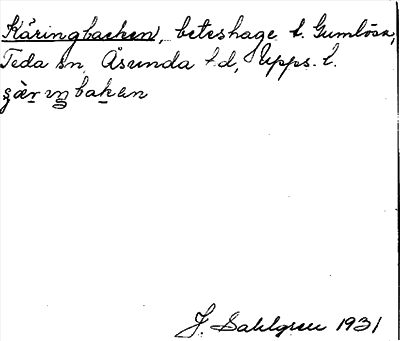 Käringbacken, beteshage t. Gumlösa,
Teda sn, Åsunda hd, Upps. l.
baken
J. Sahlgren 1931